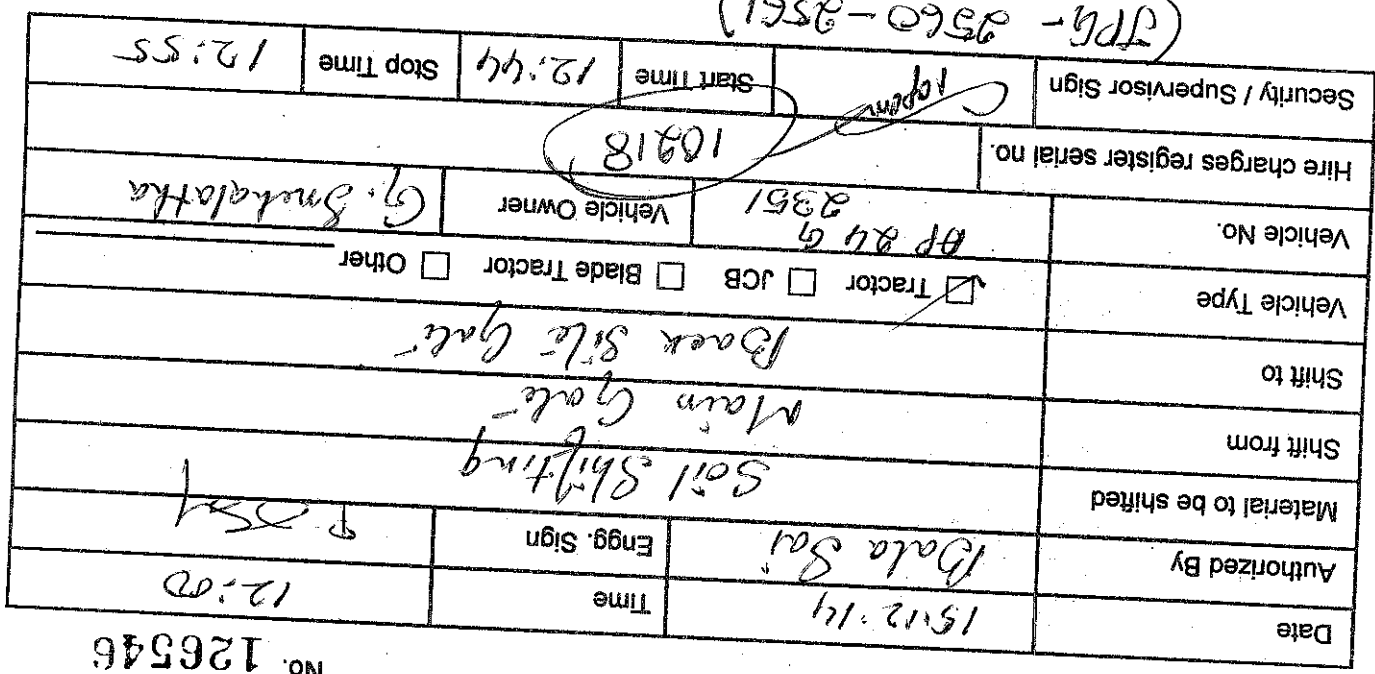 No. 126546
Date 15.12.14 Time 12:00
Authorized By Bala Sai Engg. Sign
Material to be shifted Soil Shifting
Shift from Main Gate
Shift to Back Side Gate
Vehicle Type Tractor JCB Blade Tractor Other
Vehicle No. AP 24 G 2351 Vehicle Owner G. Snehalatha
Hire charges register serial no. 10218
Security / Supervisor Sign Start Time 12:44 Stop Time 12:55
(JPG - 2560 - 2561)